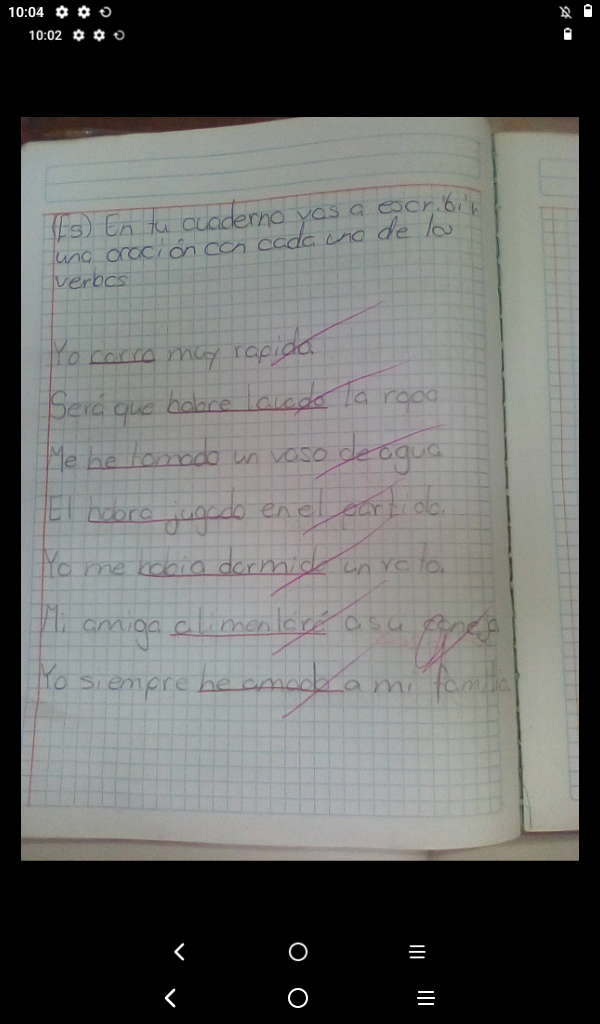 10:04
10:02
(Es) En tu cuaderno vas a escribir
una oración con cada una de los
verbos
Yo corro muy rapido.
Será que habre lavado la ropa
Me he tomado un vaso de agua
El habra jugado en el partido.
Yo me habia dormido un rato.
Mi amiga alimentaré a su
Yo siempre he amado a mi familia